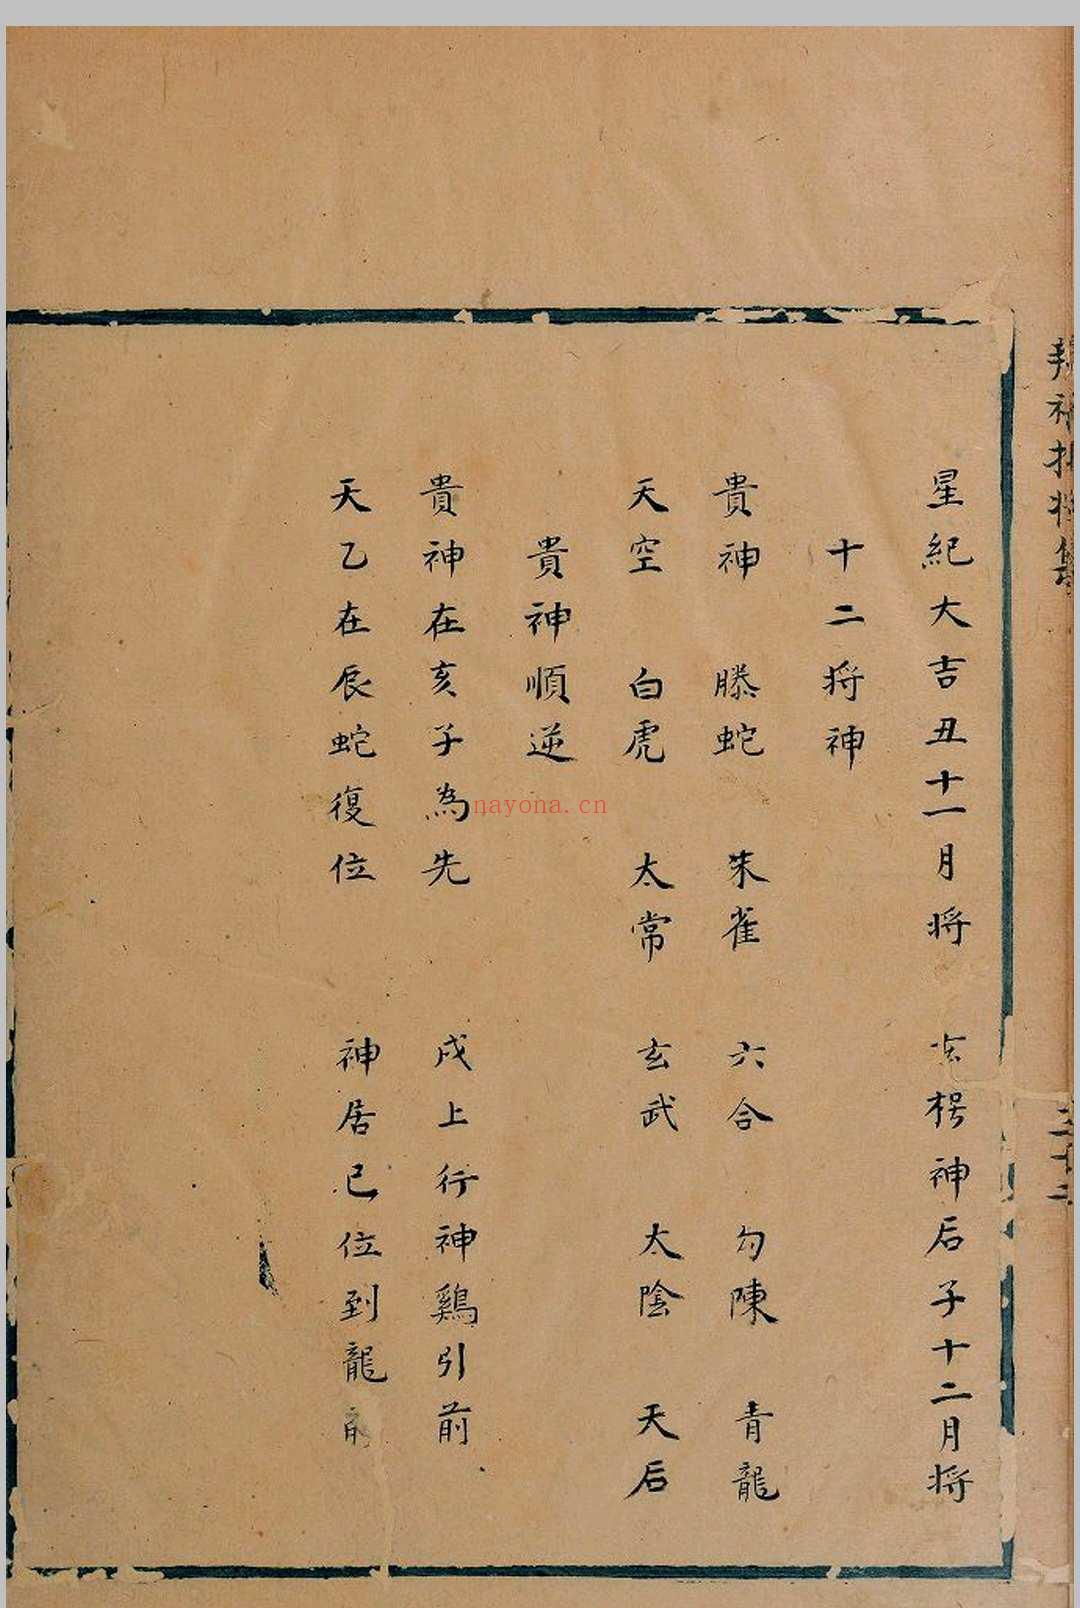 星紀大吉丑十一月将 玄枵神后子十二月将
十二将神
貴神 螣蛇 朱雀 六合 勾陳 青龍
天空 白虎 太常 玄武 太陰 天后
貴神順逆
貴神在亥子為先 戌上行神鷄引前
天乙在辰蛇復位 神居巳位到龍前
nayona.cn